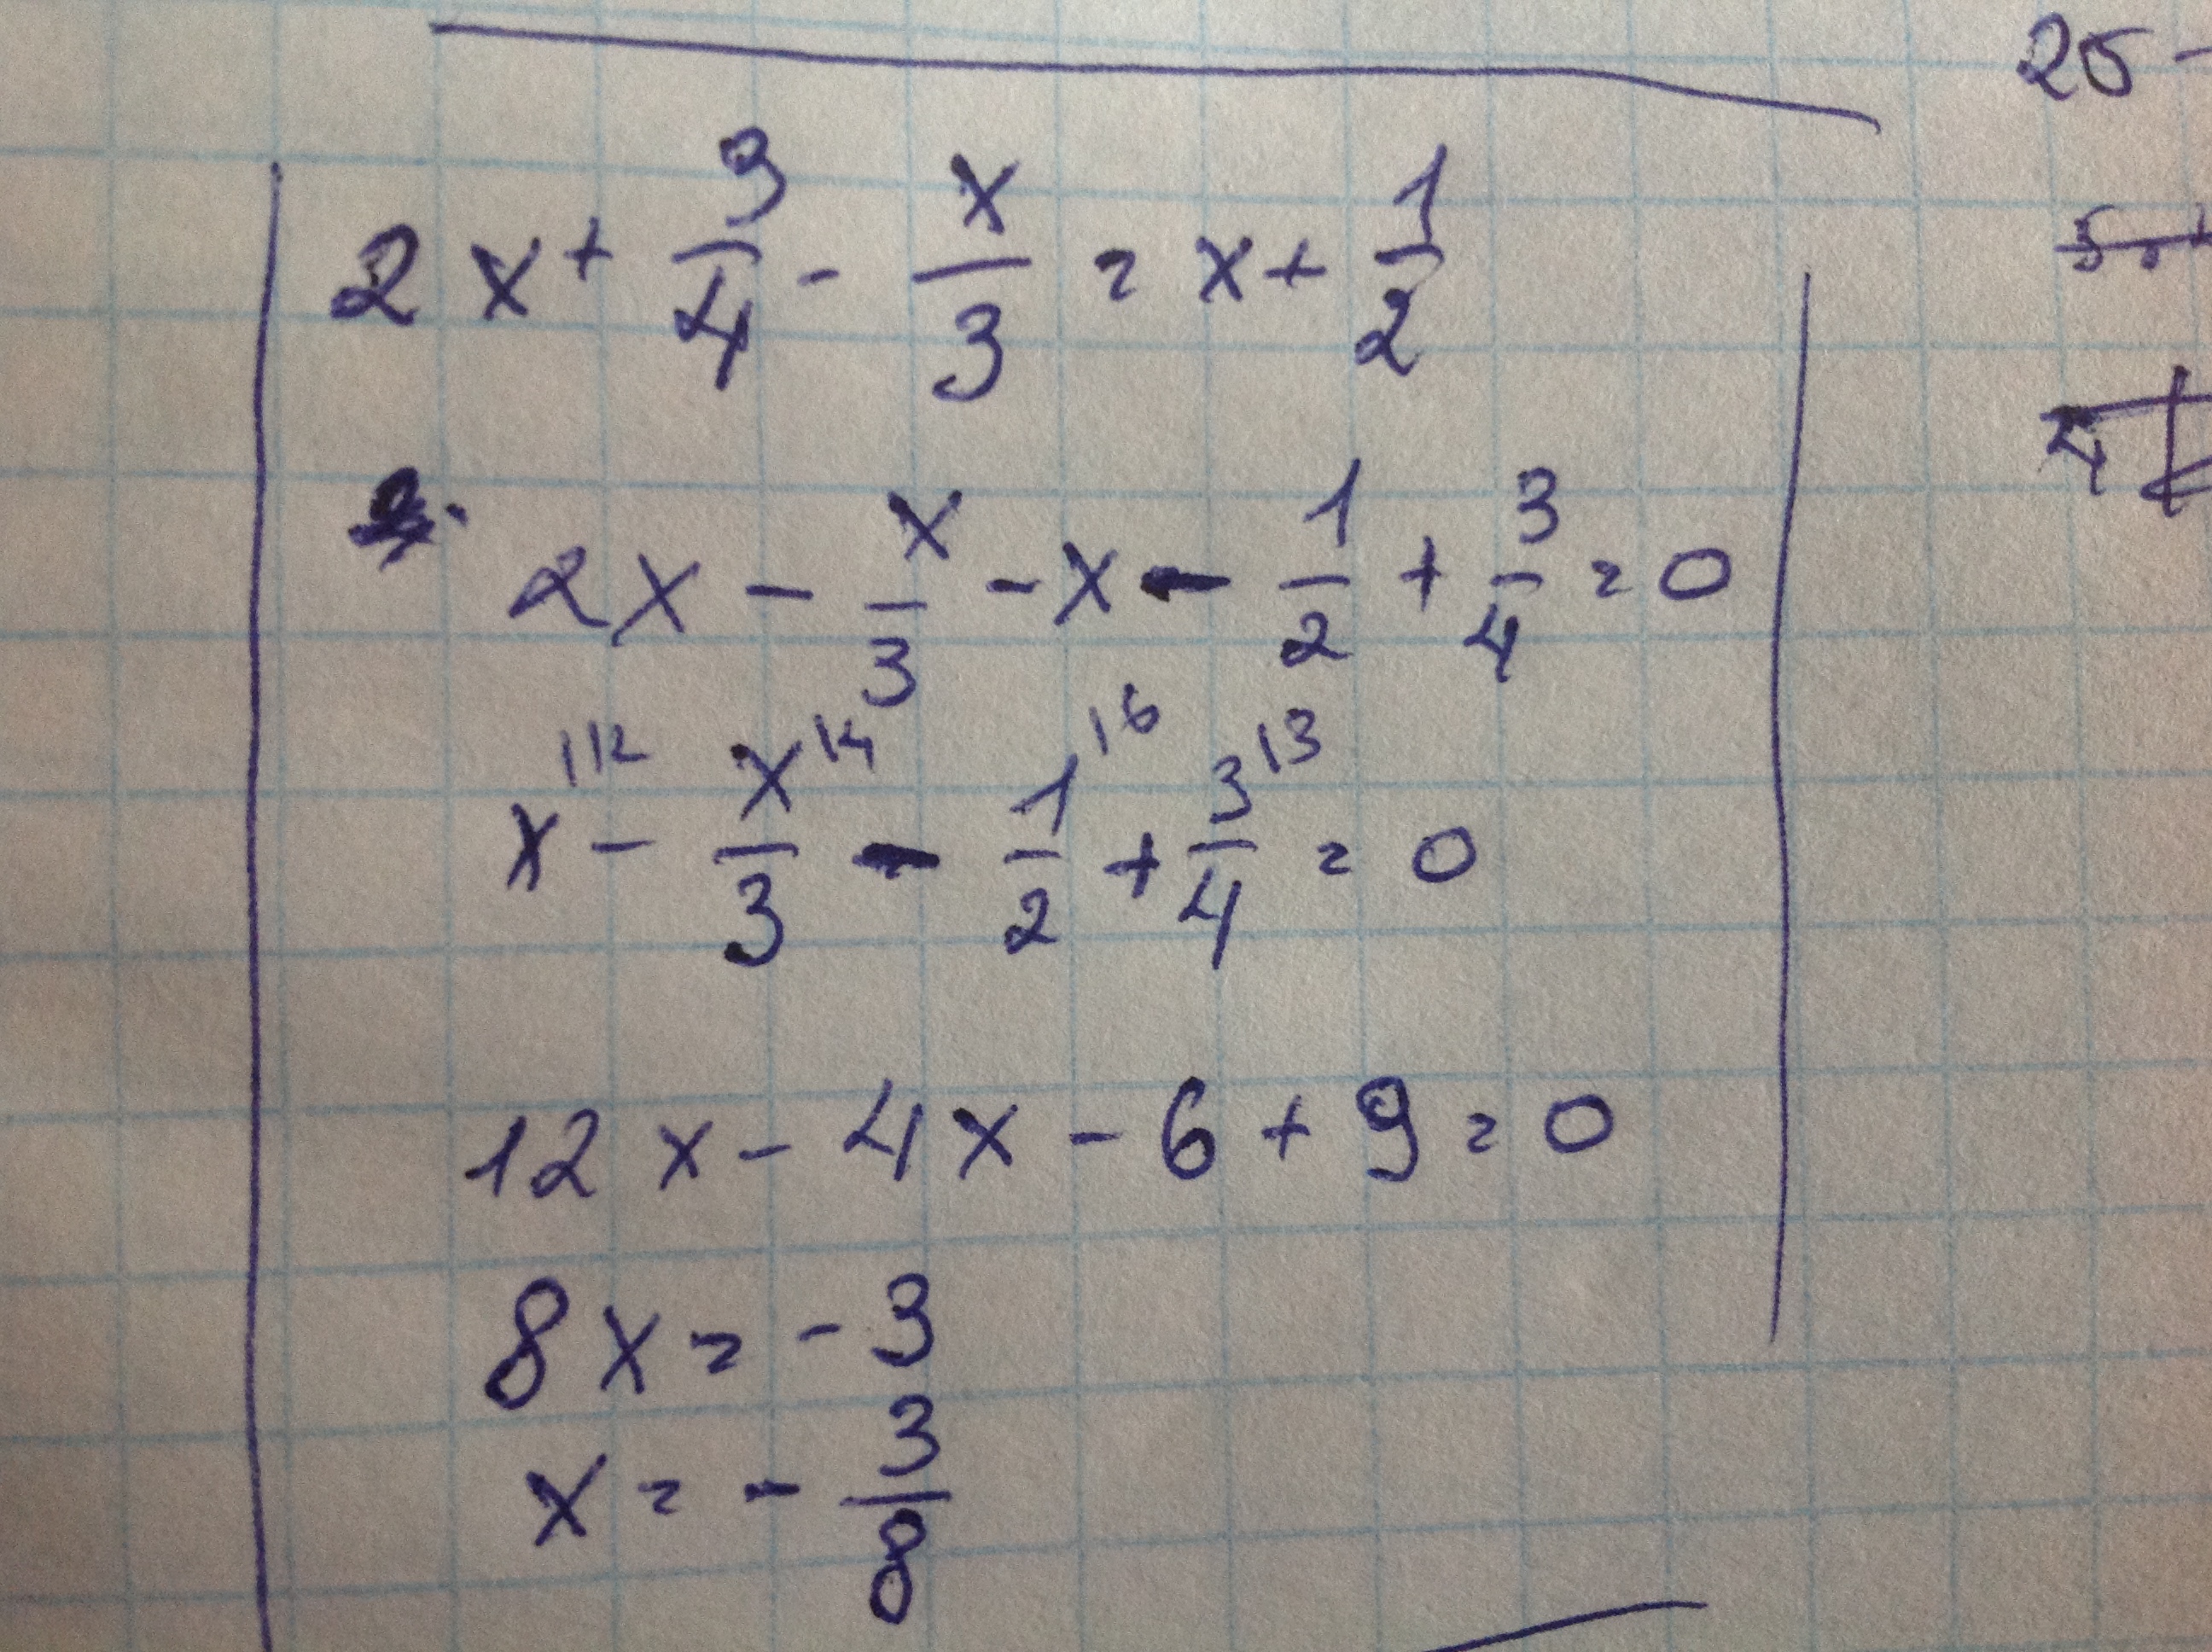 2x + 3/4 - x/3 = x + 1/2
2x - x/3 - x - 1/2 + 3/4 = 0
x\12 - x\4/3 - 1\6/2 + 3\3/4 = 0
12x - 4x - 6 + 9 = 0
8x = -3
x = - 3/8
25 -